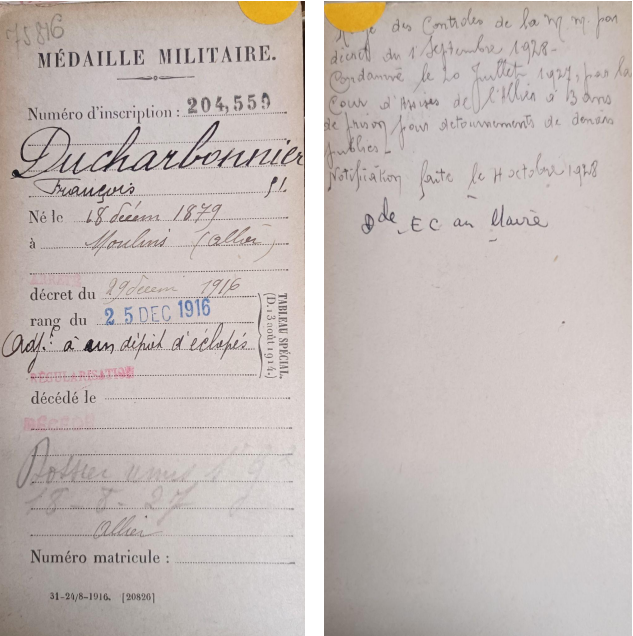 75816
MÉDAILLE MILITAIRE.
Numéro d'inscription : 204,559
Ducharbonnier
François
Né le 18 décem 1879
à Moulins (Allier)
décret du 29 décem 1916
rang du 25 DEC 1916
TABLEAU SPÉCIAL
(D. 13 août 1914.)
Adjt à un dépôt d'éclopés
RÉGULARISATION
décédé le
Dossier
18-8-27
Allier
Numéro matricule :
31-24/8-1916. [20820]
des Controles de la M M. par
décret du 1 Septembre 1928-
Condamné le 20 Juillet 1927, par la
Cour d'Assises de l'Allier à 3 ans
de prison pour detournements de deniers
publics-
Notification faite le 4 octobre 1928
Dde E C au Maire